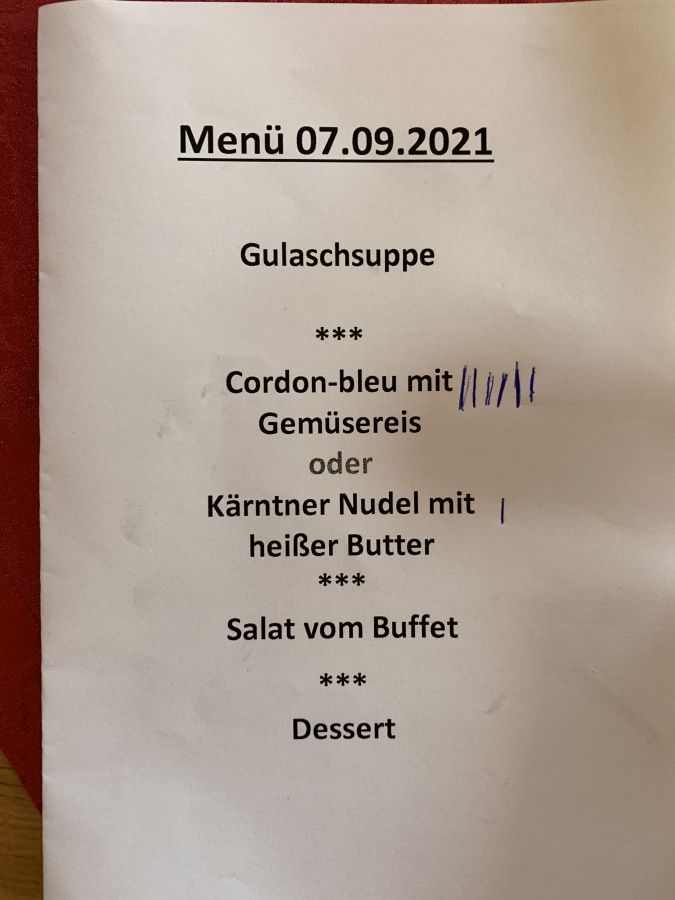 Menü 07.09.2021
Gulaschsuppe
***
Cordon-bleu mit
Gemüsereis
oder
Kärntner Nudel mit
heißer Butter
***
Salat vom Buffet
***
Dessert